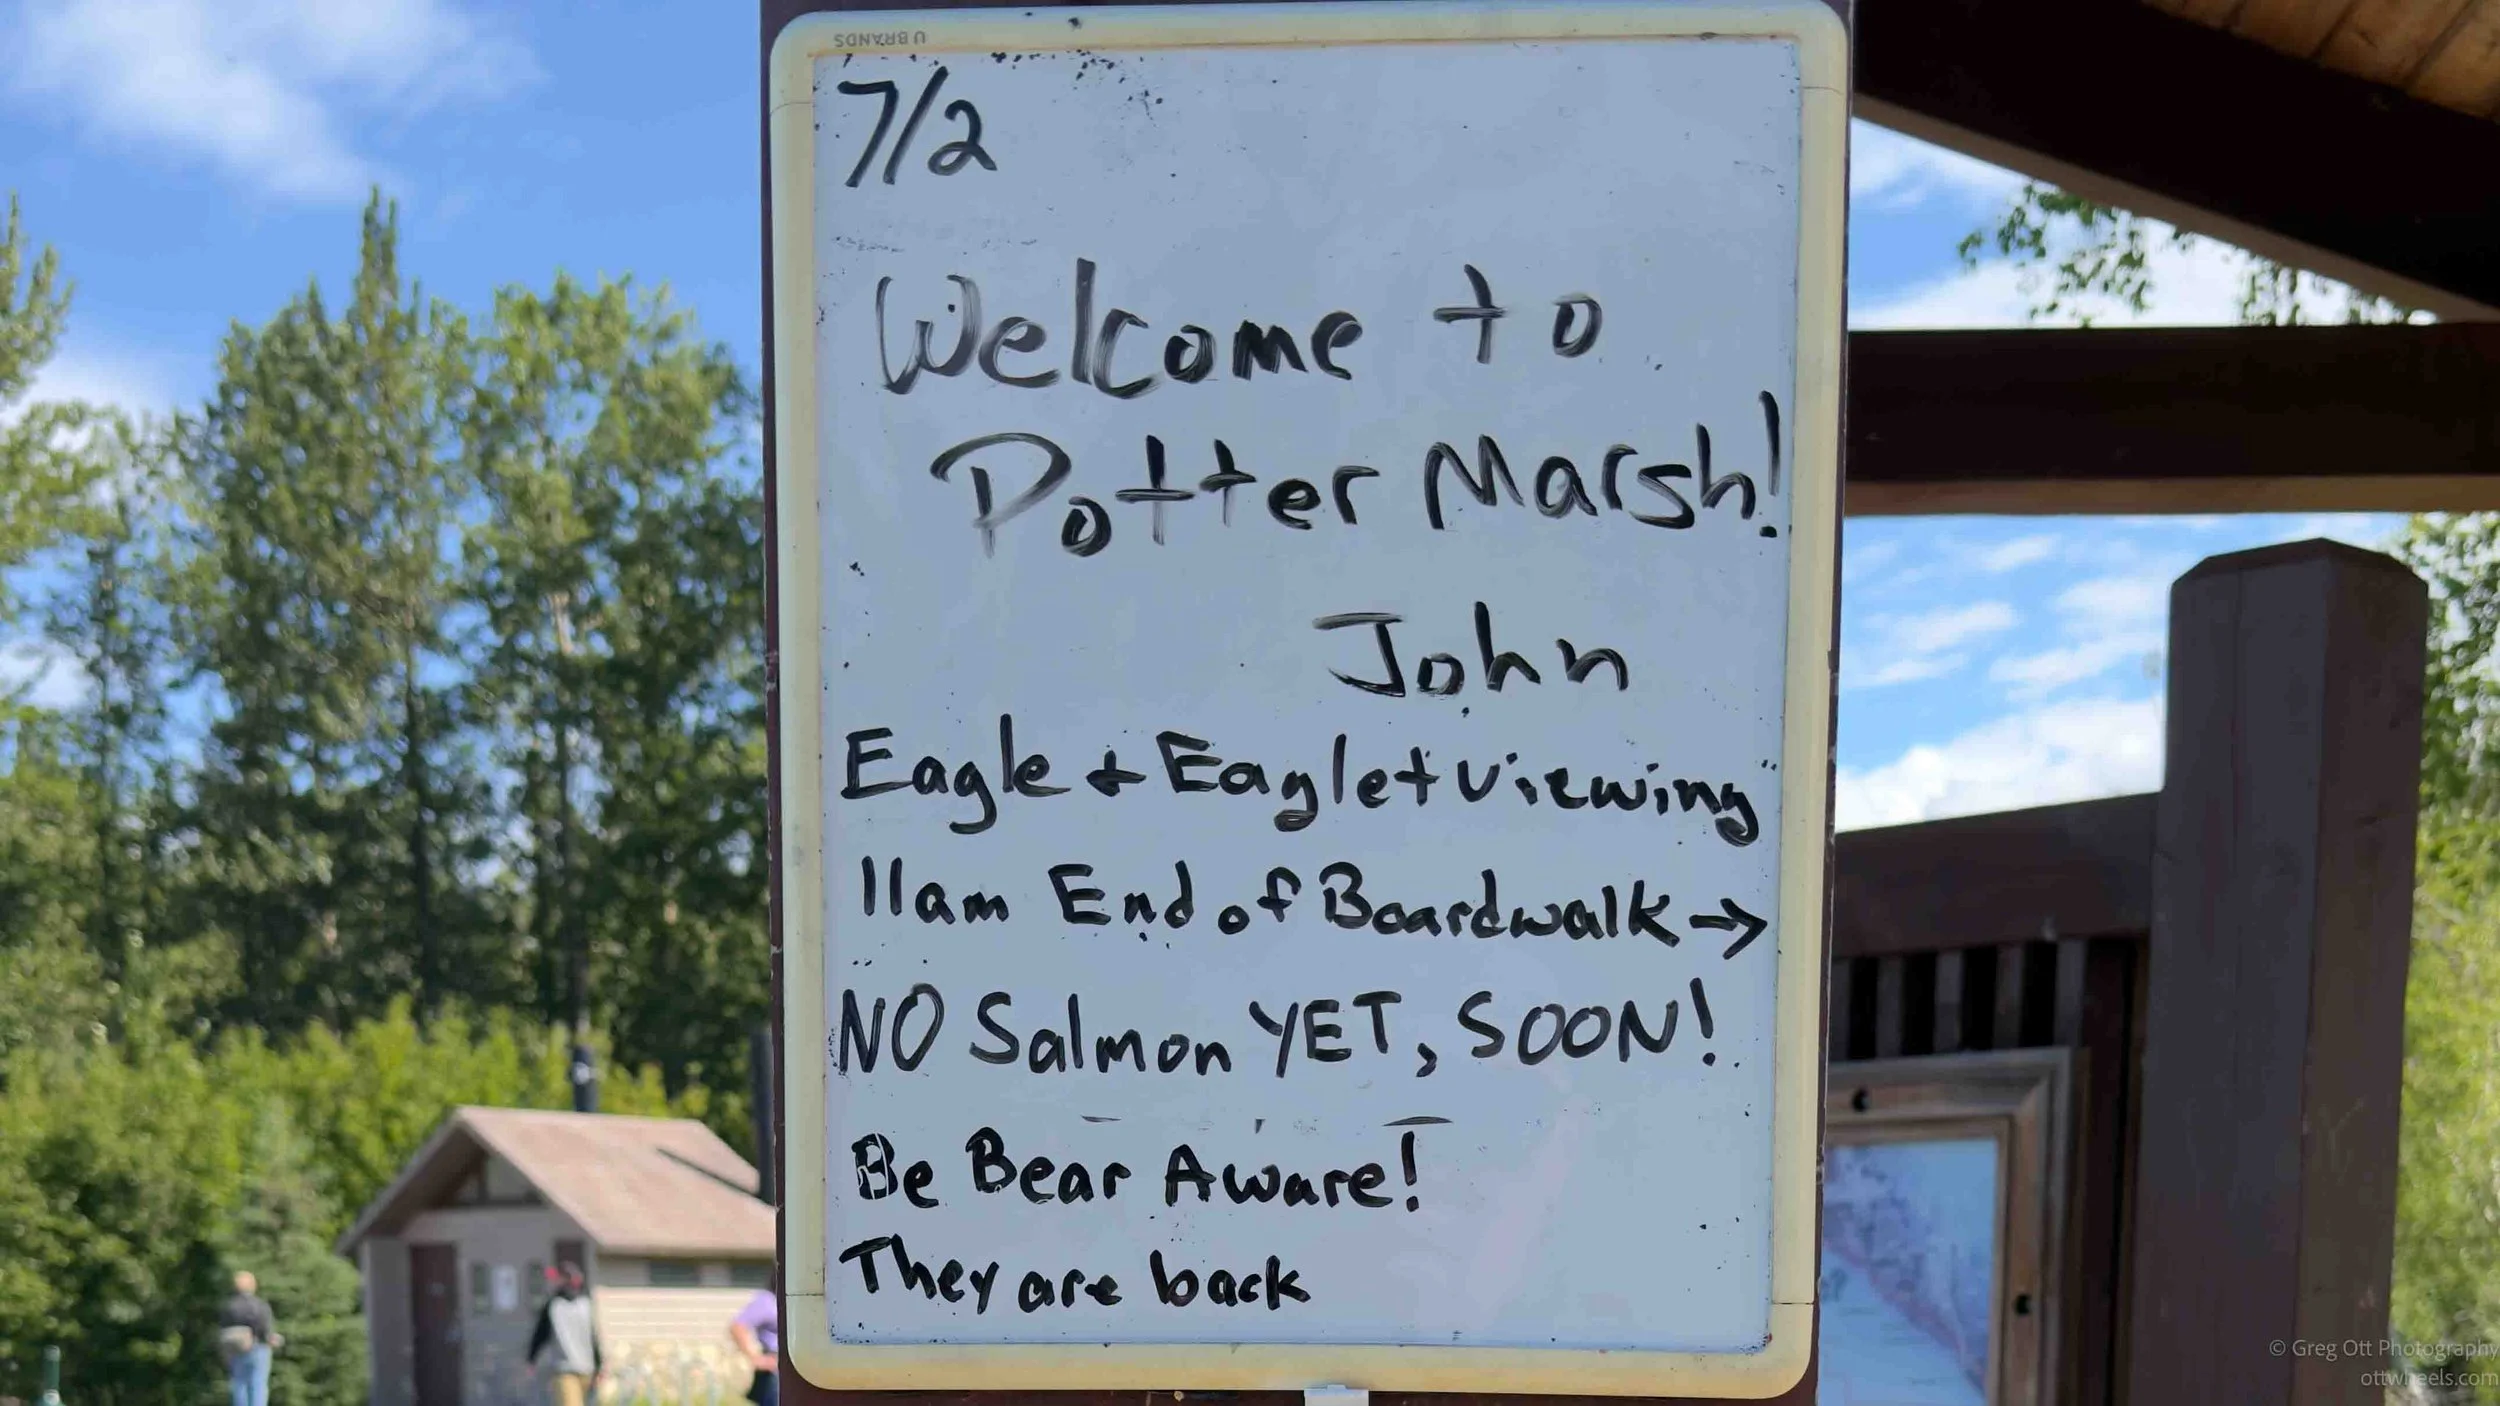 U BRANDS
7/2
Welcome to
Potter Marsh!
John
Eagle + Eaglet viewing
11am End of Boardwalk →
NO Salmon YET, SOON!
Be Bear Aware!
They are back
© Greg Ott Photography
ottwheels.com